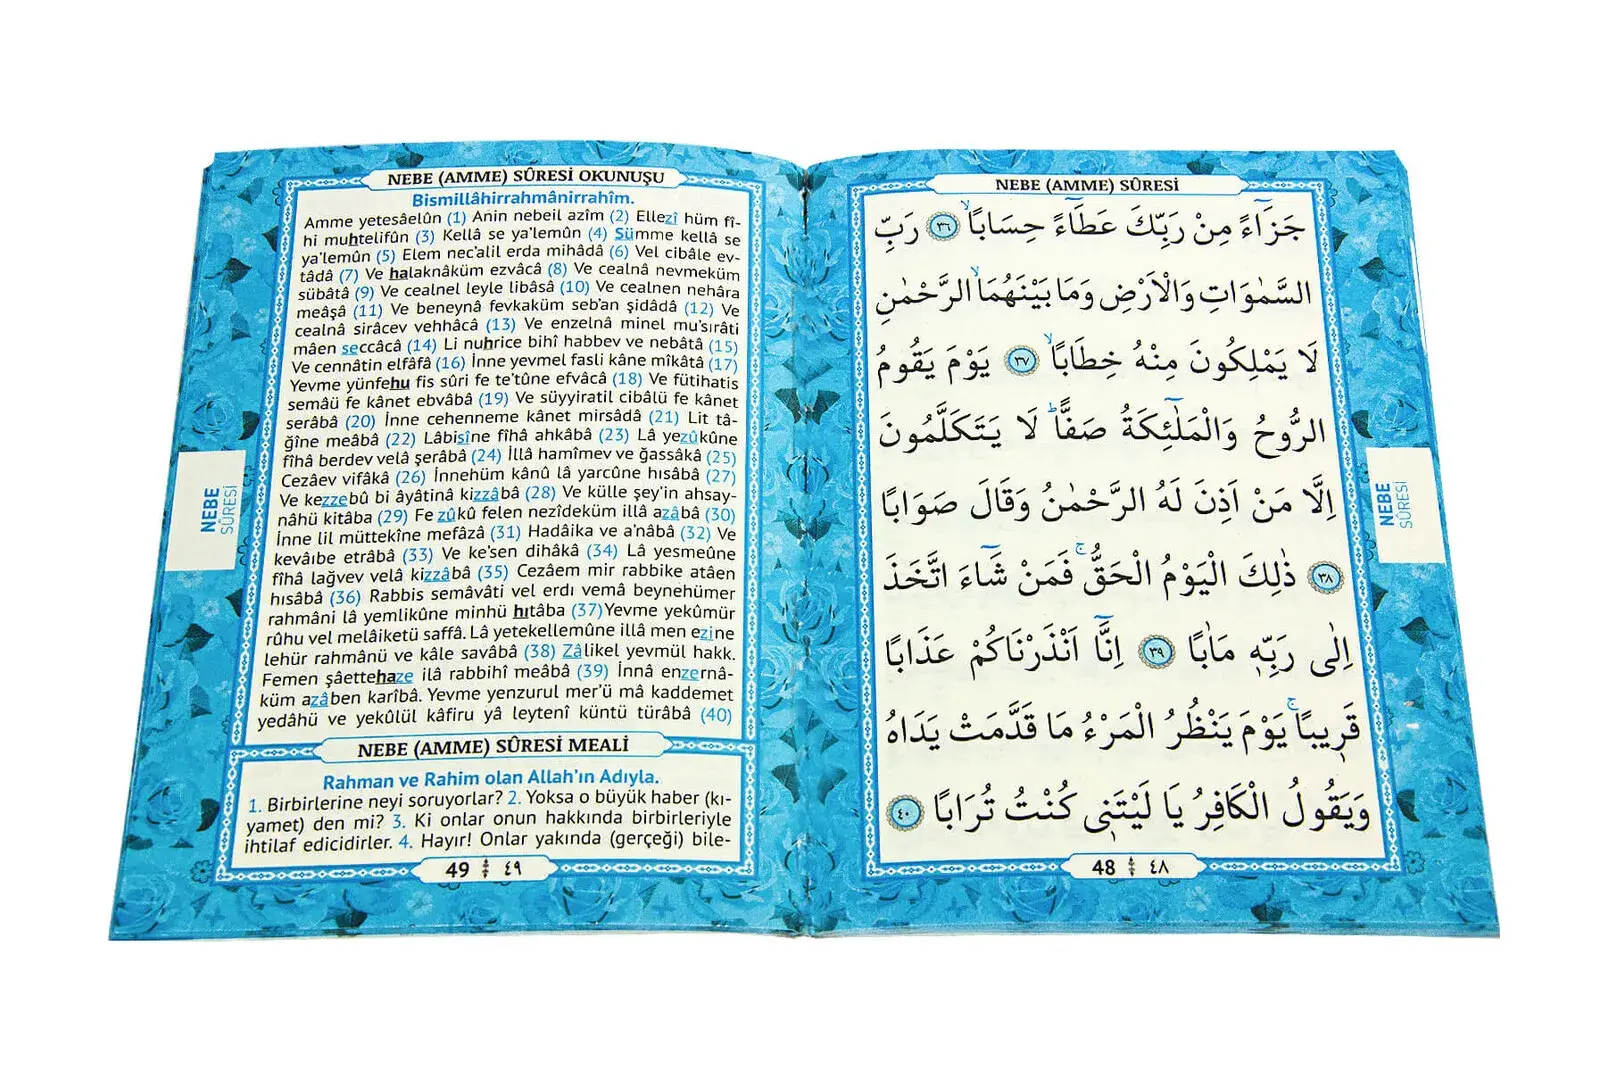 NEBE (AMME) SÛRESİ
جَزَٓاءً مِنْ رَبِّكَ عَطَٓاءً حِسَابًاۙ ﴿٣٦﴾ رَبِّ
السَّمٰوَاتِ وَالْاَرْضِ وَمَا بَيْنَهُمَاۙ الرَّحْمٰنِ
لَا يَمْلِكُونَ مِنْهُ خِطَابًاۙ ﴿٣٧﴾ يَوْمَ يَقُومُ
الرُّوحُ وَالْمَلٰٓئِكَةُ صَفًّاۜ لَا يَتَكَلَّمُونَ
اِلَّا مَنْ اَذِنَ لَهُ الرَّحْمٰنُ وَقَالَ صَوَابًا
﴿٣٨﴾ ذٰلِكَ الْيَوْمُ الْحَقُّۚ فَمَنْ شَٓاءَ اتَّخَذَ
اِلٰى رَبِّه۪ مَاٰبًا ﴿٣٩﴾ اِنَّٓا اَنْذَرْنَاكُمْ عَذَابًا
قَر۪يبًاۚ يَوْمَ يَنْظُرُ الْمَرْءُ مَا قَدَّمَتْ يَدَاهُ
وَيَقُولُ الْكَافِرُ يَا لَيْتَن۪ي كُنْتُ تُرَابًا ﴿٤٠﴾
48 ٤٨
NEBE
SÛRESİ
NEBE (AMME) SÛRESİ OKUNUŞU
Bismillâhirrahmânirrahîm.
Amme yetesâelûn (1) Anin nebeil azîm (2) Ellezî hüm fî-
hi muhtelifûn (3) Kellâ se ya'lemûn (4) Sümme kellâ se
ya'lemûn (5) Elem nec'alil erda mihâdâ (6) Vel cibâle ev-
tâdâ (7) Ve halaknâküm ezvâcâ (8) Ve cealnâ nevmeküm
sübâtâ (9) Ve cealnel leyle libâsâ (10) Ve cealnen nehâra
meâşâ (11) Ve beneynâ fevkaküm seb'an şidâdâ (12) Ve
cealnâ sirâcev vehhâcâ (13) Ve enzelnâ minel mu'sırâti
mâen seccâcâ (14) Li nuhrice bihî habbev ve nebâtâ (15)
Ve cennâtin elfâfâ (16) İnne yevmel fasli kâne mîkâtâ (17)
Yevme yünfehu fis sûri fe te'tûne efvâcâ (18) Ve fütihatis
semâü fe kânet ebvâbâ (19) Ve süyyiratil cibâlü fe kânet
serâbâ (20) İnne cehenneme kânet mirsâdâ (21) Lit tâ-
ğîne meâbâ (22) Lâbisîne fîhâ ahkâbâ (23) Lâ yezûkûne
fîhâ berdev velâ şerâbâ (24) İllâ hamîmev ve ğassâkâ (25)
Cezâev vifâkâ (26) İnnehüm kânû lâ yarcûne hısâbâ (27)
Ve kezzebû bi âyâtinâ kizzâbâ (28) Ve külle şey'in ahsay-
nâhü kitâba (29) Fe zûkû felen nezîdeküm illâ azâbâ (30)
İnne lil müttekîne mefâzâ (31) Hadâika ve a'nâbâ (32) Ve
kevâıbe etrâbâ (33) Ve ke'sen dihâkâ (34) Lâ yesmeûne
fîhâ lağvev velâ kizzâbâ (35) Cezâem mir rabbike atâen
hısâbâ (36) Rabbis semâvâti vel erdı vemâ beynehümer
rahmâni lâ yemlikûne minhü hıtâba (37)Yevme yekûmür
rûhu vel melâiketü saffâ. Lâ yetekellemûne illâ men ezine
lehür rahmânü ve kâle savâbâ (38) Zâlikel yevmül hakk.
Femen şâettehaze ilâ rabbihî meâbâ (39) İnnâ enzernâ-
küm azâben karîbâ. Yevme yenzurul mer'ü mâ kaddemet
yedâhü ve yekûlül kâfiru yâ leytenî küntü türâbâ (40)
NEBE (AMME) SÛRESİ MEALİ
Rahman ve Rahim olan Allah'ın Adıyla.
1. Birbirlerine neyi soruyorlar? 2. Yoksa o büyük haber (kı-
yamet) den mi? 3. Ki onlar onun hakkında birbirleriyle
ihtilaf edicidirler. 4. Hayır! Onlar yakında (gerçeği) bile-
49 ٤٩
NEBE
SÛRESİ